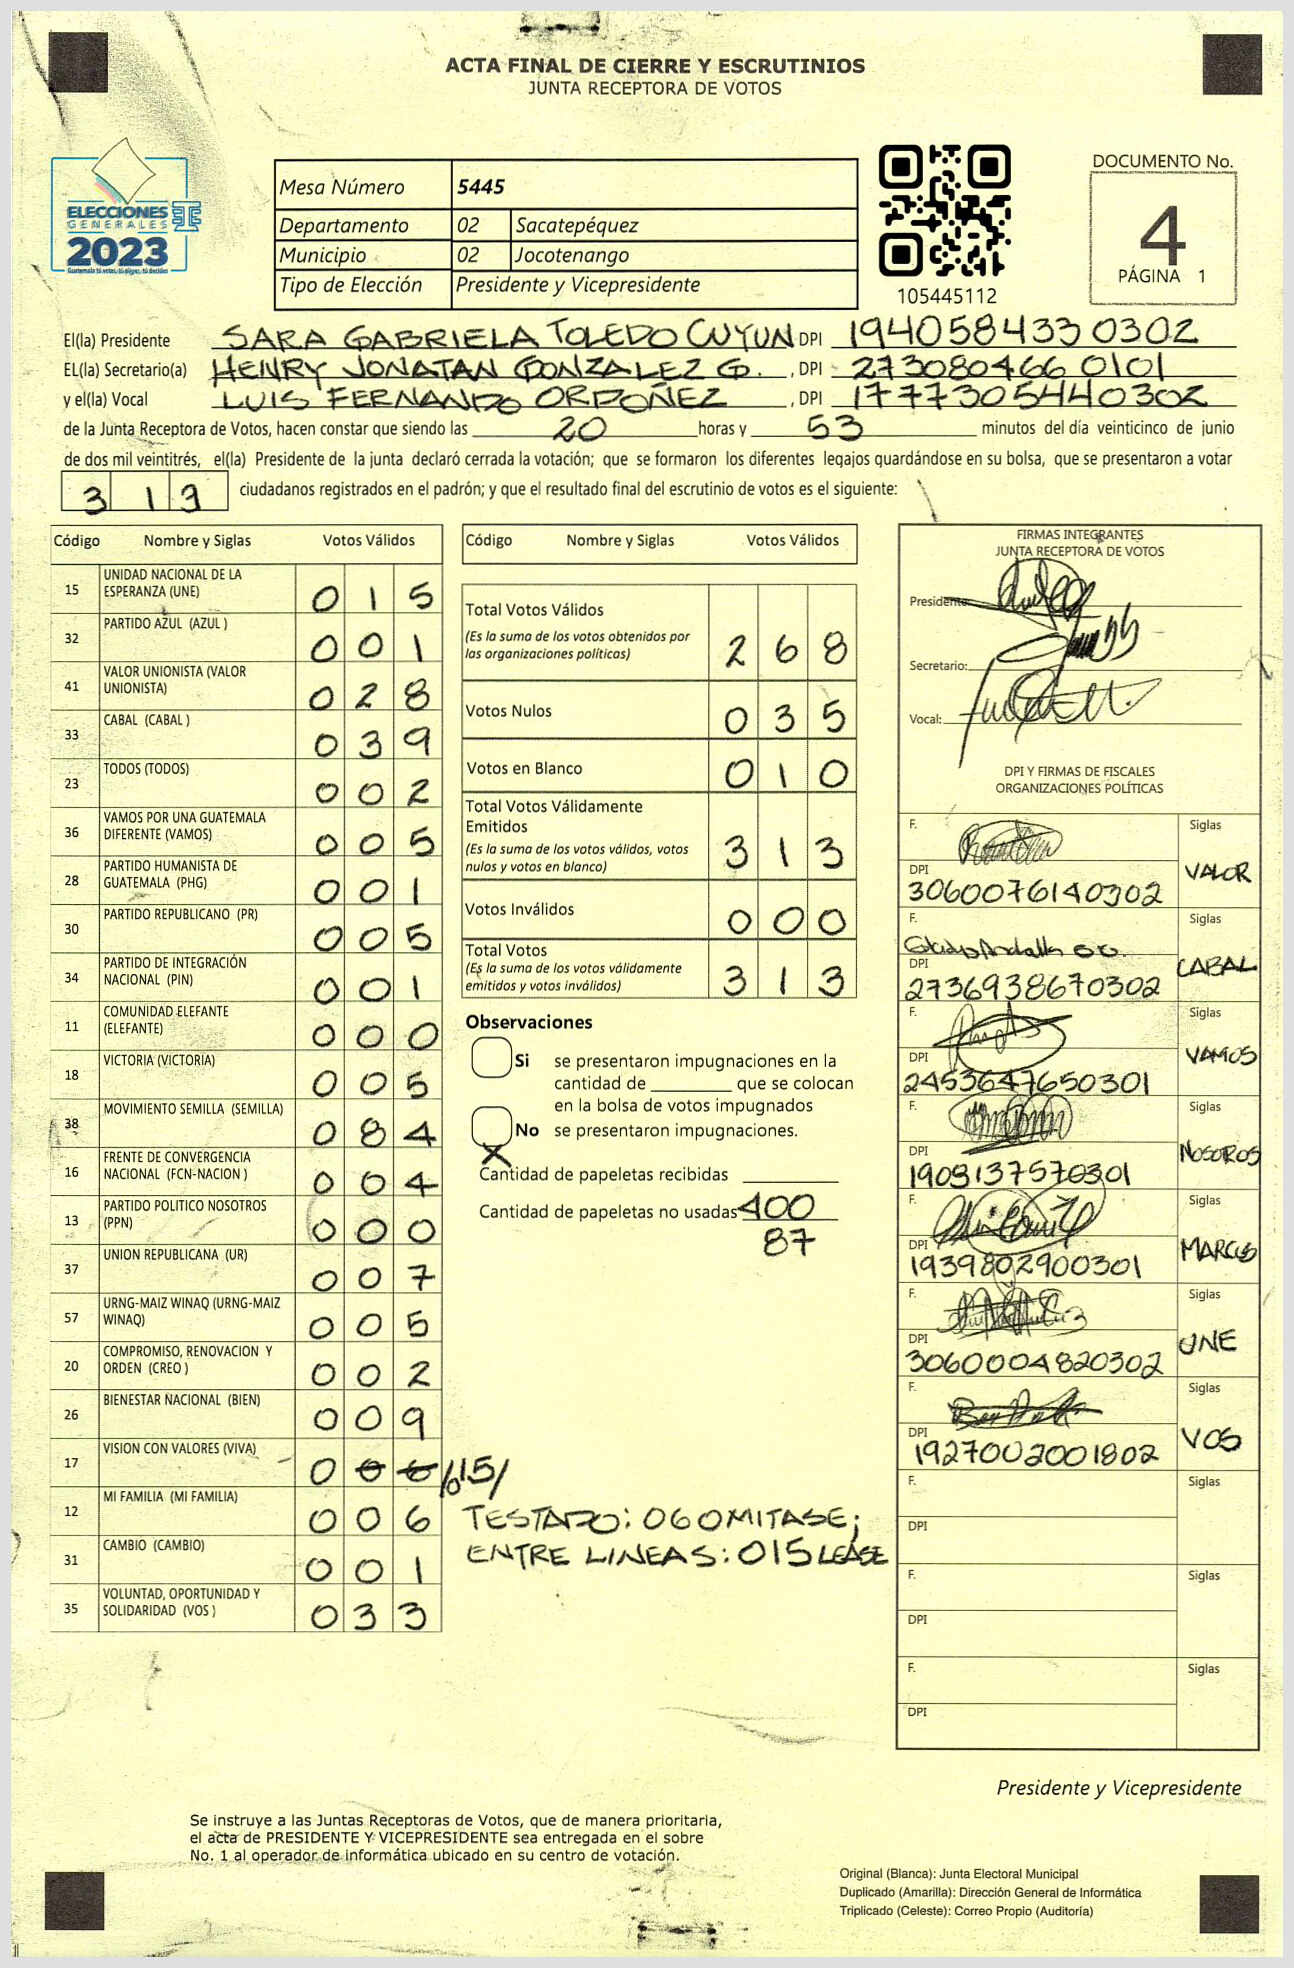 ACTA FINAL DE CIERRE Y ESCRUTINIOS
JUNTA RECEPTORA DE VOTOS
ELECCIONES
GENERALES
2023
Guatemala tú votas, tú eliges, tú decides
Mesa Número 5445
Departamento 02 Sacatepéquez
Municipio 02 Jocotenango
Tipo de Elección Presidente y Vicepresidente
105445112
DOCUMENTO No.
4
PÁGINA 1
El(la) Presidente SARA GABRIELA TOLEDO CUYUN DPI 1940584330302
EL(la) Secretario(a) HENRY JONATAN GONZALEZ G. , DPI 2730804660101
y el(la) Vocal LUIS FERNANDO ORDOÑEZ , DPI 1777305440302
de la Junta Receptora de Votos, hacen constar que siendo las 20 horas y 53 minutos del día veinticinco de junio
de dos mil veintitrés, el(la) Presidente de la junta declaró cerrada la votación; que se formaron los diferentes legajos guardándose en su bolsa, que se presentaron a votar
313 ciudadanos registrados en el padrón; y que el resultado final del escrutinio de votos es el siguiente:
Código Nombre y Siglas Votos Válidos
15 UNIDAD NACIONAL DE LA
ESPERANZA (UNE) 015
32 PARTIDO AZUL (AZUL ) 001
41 VALOR UNIONISTA (VALOR
UNIONISTA) 028
33 CABAL (CABAL ) 039
23 TODOS (TODOS) 002
36 VAMOS POR UNA GUATEMALA
DIFERENTE (VAMOS) 005
28 PARTIDO HUMANISTA DE
GUATEMALA (PHG) 001
30 PARTIDO REPUBLICANO (PR) 005
34 PARTIDO DE INTEGRACIÓN
NACIONAL (PIN) 001
11 COMUNIDAD ELEFANTE
(ELEFANTE) 000
18 VICTORIA (VICTORIA) 005
38 MOVIMIENTO SEMILLA (SEMILLA) 084
16 FRENTE DE CONVERGENCIA
NACIONAL (FCN-NACION ) 004
13 PARTIDO POLITICO NOSOTROS
(PPN) 000
37 UNION REPUBLICANA (UR) 007
57 URNG-MAIZ WINAQ (URNG-MAIZ
WINAQ) 005
20 COMPROMISO, RENOVACION Y
ORDEN (CREO ) 002
26 BIENESTAR NACIONAL (BIEN) 009
17 VISION CON VALORES (VIVA) 006 /015/
12 MI FAMILIA (MI FAMILIA) 006
31 CAMBIO (CAMBIO) 001
35 VOLUNTAD, OPORTUNIDAD Y
SOLIDARIDAD (VOS ) 033
Código Nombre y Siglas Votos Válidos
Total Votos Válidos
(Es la suma de los votos obtenidos por
las organizaciones políticas) 268
Votos Nulos 035
Votos en Blanco 010
Total Votos Válidamente
Emitidos
(Es la suma de los votos válidos, votos
nulos y votos en blanco) 313
Votos Inválidos 000
Total Votos
(Es la suma de los votos válidamente
emitidos y votos inválidos) 313
Observaciones
Si se presentaron impugnaciones en la
cantidad de ________ que se colocan
en la bolsa de votos impugnados
No se presentaron impugnaciones.
X
Cantidad de papeletas recibidas
Cantidad de papeletas no usadas 400
87
TESTADO: 06 OMITASE;
ENTRE LINEAS: 015 LEASE
FIRMAS INTEGRANTES
JUNTA RECEPTORA DE VOTOS
Presidente:
Secretario:
Vocal:
DPI Y FIRMAS DE FISCALES
ORGANIZACIONES POLÍTICAS
F. Siglas
DPI VALOR
3060076140302
F. Siglas
DPI CABAL
2736938670302
F. Siglas
DPI VAMOS
2453647650301
F. Siglas
DPI NOSOROS
1903137570301
F. Siglas
DPI
1939802900301
F. Siglas
DPI UNE
3060004820302
F. Siglas
DPI VOS
1927002001802
F. Siglas
DPI
F. Siglas
DPI
F. Siglas
DPI
Presidente y Vicepresidente
Se instruye a las Juntas Receptoras de Votos, que de manera prioritaria,
el acta de PRESIDENTE Y VICEPRESIDENTE sea entregada en el sobre
No. 1 al operador de informática ubicado en su centro de votación.
Original (Blanca): Junta Electoral Municipal
Duplicado (Amarilla): Dirección General de Informática
Triplicado (Celeste): Correo Propio (Auditoría)